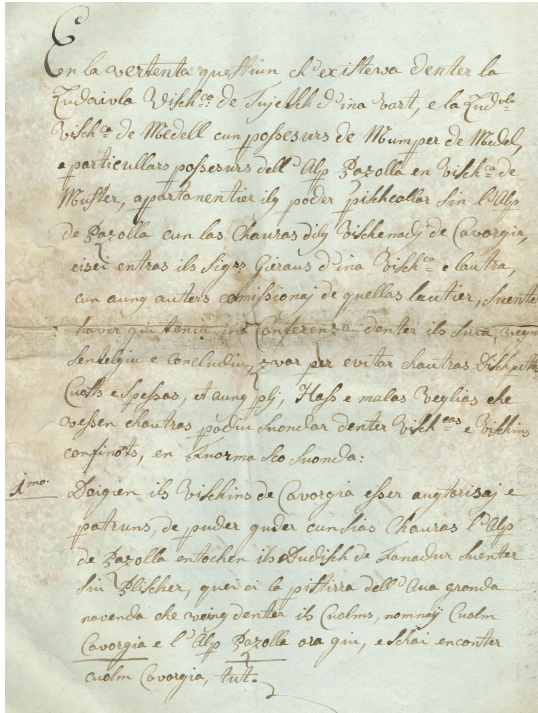 En la vertenta questiun ch'existeva denter la
Ludeivla Visch.ca de Tujetsch d'ina vart, e la Lud.vla
Visch.ca de Medell cun possesurs de Mumper de Medel,
e particullars possesurs dell' Alp Pazolla en Visch.ca de
Muster, apartanentier ilg poder pischcollar sin l'Alp
de Pazolla cun las Chauras dilg Vischenadj de Cavorgia,
eisei entras ils Sig.rs Gieraus d'ina Visch.ca e lautra,
cun aung auters comissionaj de quellas lautier, suenter
haver giu toniu ina Conferenza denter ils sura,
sentelgiu e concludiu, zvar per evitar chautras
Cuosts e Spessas, et aung plj, Hass e malas veglias che
vessen chautras podiu suondar denter Visch.cas e Vischins
confinots, en Enorma sco suonda:
1.mo Deigien ils Vischins de Cavorgia esser augtorisaj e
patruns, de puder guder cun sias Chauras l'Alp
de Pazolla entochen ils Dudisch de Fanadur suenter
sin Plischer, quei ei la pistirra dell' Aua gronda
navenda che veing denter ils Cuolms, nomnaj Cuolm
Cavorgia e l'Alp Pazolla ora giu, e schai enconter
cuolm Cavorgia, tut.